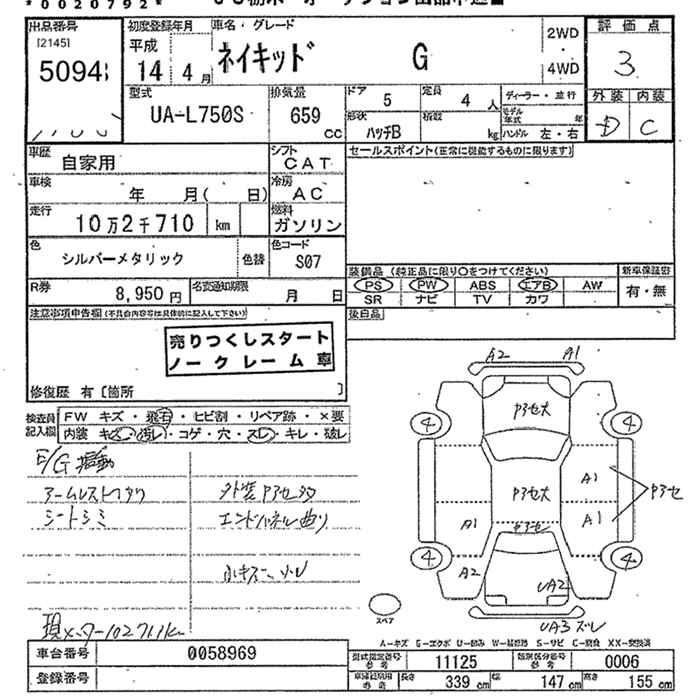 *0020792*
出品番号
[2145]
初度登録年月
車名・グレード
平成
14年 4月
ネイキッド G
2WD
4WD
評価点
3
外装 内装
D C
型式
UA-L750S
排気量
659
cc
ドア
5
定員
4人
形状
ハッチB
積載
kg
ディーラー・並行
モデル年式 年
ハンドル 左・右
車歴
自家用
シフト
CAT
セールスポイント(正常に機能するものに限ります)
車検
年 月( 日)
冷房
AC
走行
10万2千710 km
燃料
ガソリン
色
シルバーメタリック
色替
色コード
S07
装備品 (純正品に限り○をつけてください)
新車保証書
PS PW ABS エアB AW
有・無
SR ナビ TV カワ
R券
8,950円
名変通知期限
月 日
後日品
注意事項申告欄(不具合内容等は具体的に記入して下さい)
売りつくしスタート
ノークレーム車
修復歴 有〔箇所 〕
検査員記入欄
FW キズ・飛石・ヒビ割・リペア跡・×要
内装 キズ・汚れ・コゲ・穴・スレ・キレ・破レ
E/G振動
アームレスト
シートシミ
外装アセ
エンドパネル曲り
小キズ
A2 A1
アセ大
4 4
A1
アセ大
アセ
A1 A1
アセ
4 4
A2 UA2
UA3 ズレ
スペア
現メーター102711km
A-キズ G-エクボ U-凹み W-補修跡 S-サビ C-腐食 XX-交換済
車台番号
0058969
型式指定番号
参考
11125
類別区分番号
参考
0006
登録番号
長さ
339 cm
幅
147 cm
高さ
155 cm